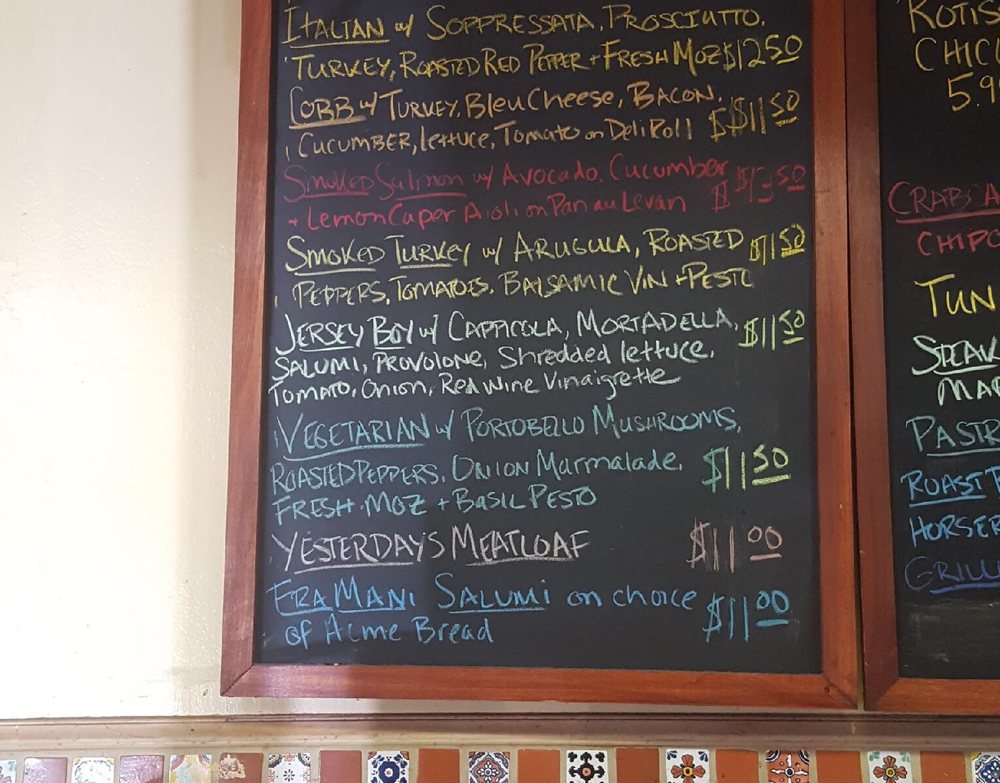 ITALIAN w/ SOPPRESSATA, PROSCIUTTO,
TURKEY, ROASTED RED PEPPER + FRESH MOZ $12.50
COBB w/ TURKEY, Bleu Cheese, BACON,
CUCUMBER, lettuce, Tomato on Deli Roll $$11.50
Smoked Salmon w/ Avocado, Cucumber
+ Lemon Caper Aioli on Pan au Levan $$13.50
SMOKED TURKEY w/ ARUGULA, ROASTED $11.50
PEPPERS, TOMATOES, BALSAMIC VIN + PESTO
JERSEY BOY w/ CAPPICOLA, MORTADELLA, $11.50
SALUMI, PROVOLONE, Shredded lettuce,
Tomato, Onion, Red Wine Vinaigrette
VEGETARIAN w/ PORTOBELLO MUSHROOMS,
ROASTED PEPPERS, ONION Marmalade, $11.50
FRESH MOZ + BASIL PESTO
YESTERDAYS MEATLOAF $11.00
FRA MANI SALUMI on choice $11.00
of Acme Bread
CHIC
5.9
CRABCA
CHIPO
TUN
SPEAK
MAR
PASTR
ROAST
HORSER
GRILL